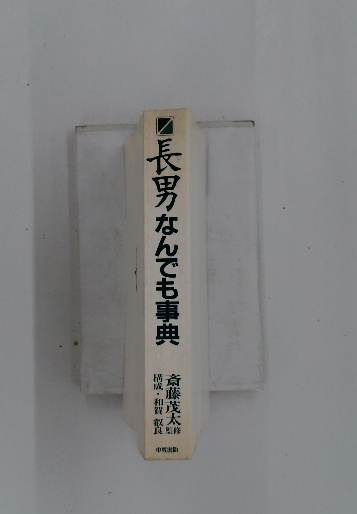 長男なんでも事典
斎藤茂太監修
構成・和賀 叡良
中教出版